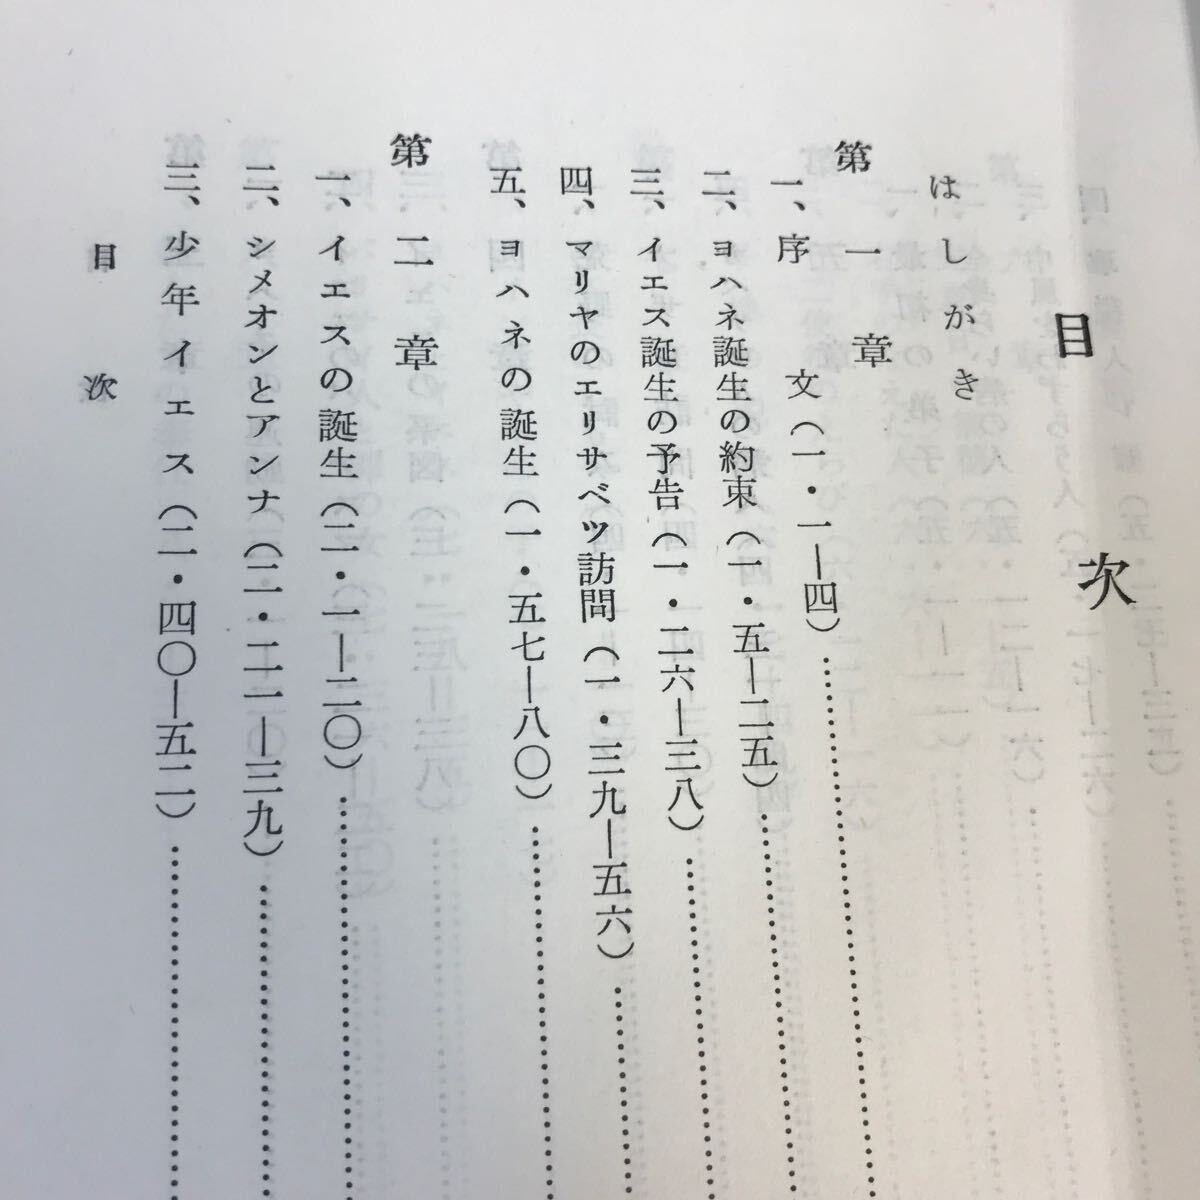 目次
はしがき
第一章
一、序文（一・一―四）
二、ヨハネ誕生の約束（一・五―二五）
三、イエス誕生の予告（一・二六―三八）
四、マリヤのエリサベツ訪問（一・三九―五六）
五、ヨハネの誕生（一・五七―八〇）
第二章
一、イエスの誕生（二・一―二〇）
二、シメオンとアンナ（二・二一―三九）
三、少年イエス（二・四〇―五二）
目次